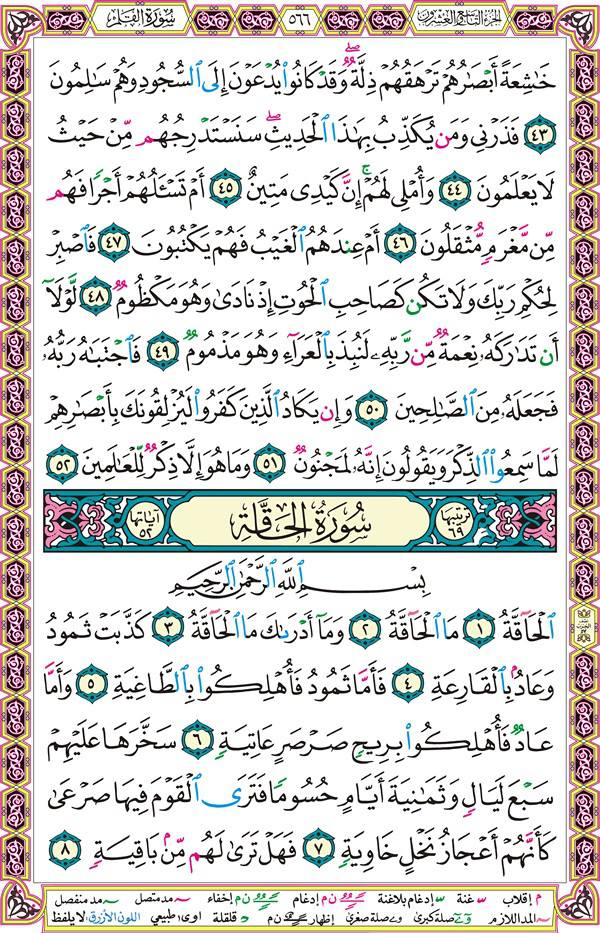 الجزء التاسع والعشرون
٥٦٦
سورة القلم
خَٰشِعَةً أَبْصَٰرُهُمْ تَرْهَقُهُمْ ذِلَّةٌۖ وَقَدْ كَانُوا۟ يُدْعَوْنَ إِلَى ٱلسُّجُودِ وَهُمْ سَٰلِمُونَ
٤٣ فَذَرْنِى وَمَن يُكَذِّبُ بِهَٰذَا ٱلْحَدِيثِۖ سَنَسْتَدْرِجُهُم مِّنْ حَيْثُ
لَا يَعْلَمُونَ ٤٤ وَأُمْلِى لَهُمْۚ إِنَّ كَيْدِى مَتِينٌ ٤٥ أَمْ تَسْـَٔلُهُمْ أَجْرًا فَهُم
مِّن مَّغْرَمٍ مُّثْقَلُونَ ٤٦ أَمْ عِندَهُمُ ٱلْغَيْبُ فَهُمْ يَكْتُبُونَ ٤٧ فَٱصْبِرْ
لِحُكْمِ رَبِّكَ وَلَا تَكُن كَصَاحِبِ ٱلْحُوتِ إِذْ نَادَىٰ وَهُوَ مَكْظُومٌ ٤٨ لَّوْلَآ
أَن تَدَٰرَكَهُۥ نِعْمَةٌ مِّن رَّبِّهِۦ لَنُبِذَ بِٱلْعَرَآءِ وَهُوَ مَذْمُومٌ ٤٩ فَٱجْتَبَٰهُ رَبُّهُۥ
فَجَعَلَهُۥ مِنَ ٱلصَّٰلِحِينَ ٥٠ وَإِن يَكَادُ ٱلَّذِينَ كَفَرُوا۟ لَيُزْلِقُونَكَ بِأَبْصَٰرِهِمْ
لَمَّا سَمِعُوا۟ ٱلذِّكْرَ وَيَقُولُونَ إِنَّهُۥ لَمَجْنُونٌ ٥١ وَمَا هُوَ إِلَّا ذِكْرٌ لِّلْعَٰلَمِينَ ٥٢
ترتيبها ٦٩
سُورَةُ الحَاقَّةِ
آياتها ٥٢
بِسْمِ ٱللَّهِ ٱلرَّحْمَٰنِ ٱلرَّحِيمِ
ٱلْحَآقَّةُ ١ مَا ٱلْحَآقَّةُ ٢ وَمَآ أَدْرَىٰكَ مَا ٱلْحَآقَّةُ ٣ كَذَّبَتْ ثَمُودُ
وَعَادٌۢ بِٱلْقَارِعَةِ ٤ فَأَمَّا ثَمُودُ فَأُهْلِكُوا۟ بِٱلطَّاغِيَةِ ٥ وَأَمَّا
عَادٌ فَأُهْلِكُوا۟ بِرِيحٍ صَرْصَرٍ عَاتِيَةٍ ٦ سَخَّرَهَا عَلَيْهِمْ
سَبْعَ لَيَالٍ وَثَمَٰنِيَةَ أَيَّامٍ حُسُومًا فَتَرَى ٱلْقَوْمَ فِيهَا صَرْعَىٰ
كَأَنَّهُمْ أَعْجَازُ نَخْلٍ خَاوِيَةٍ ٧ فَهَلْ تَرَىٰ لَهُم مِّنۢ بَاقِيَةٍ ٨
م إقلاب غنة إدغام بلاغنة ن م إدغام ن م إخفاء مد متصل مد منفصل
المد اللازم صلة كبرى صلة صغرى إظهار ن م قلقلة اوى طبيعي اللون الأزرق: لا يلفظ